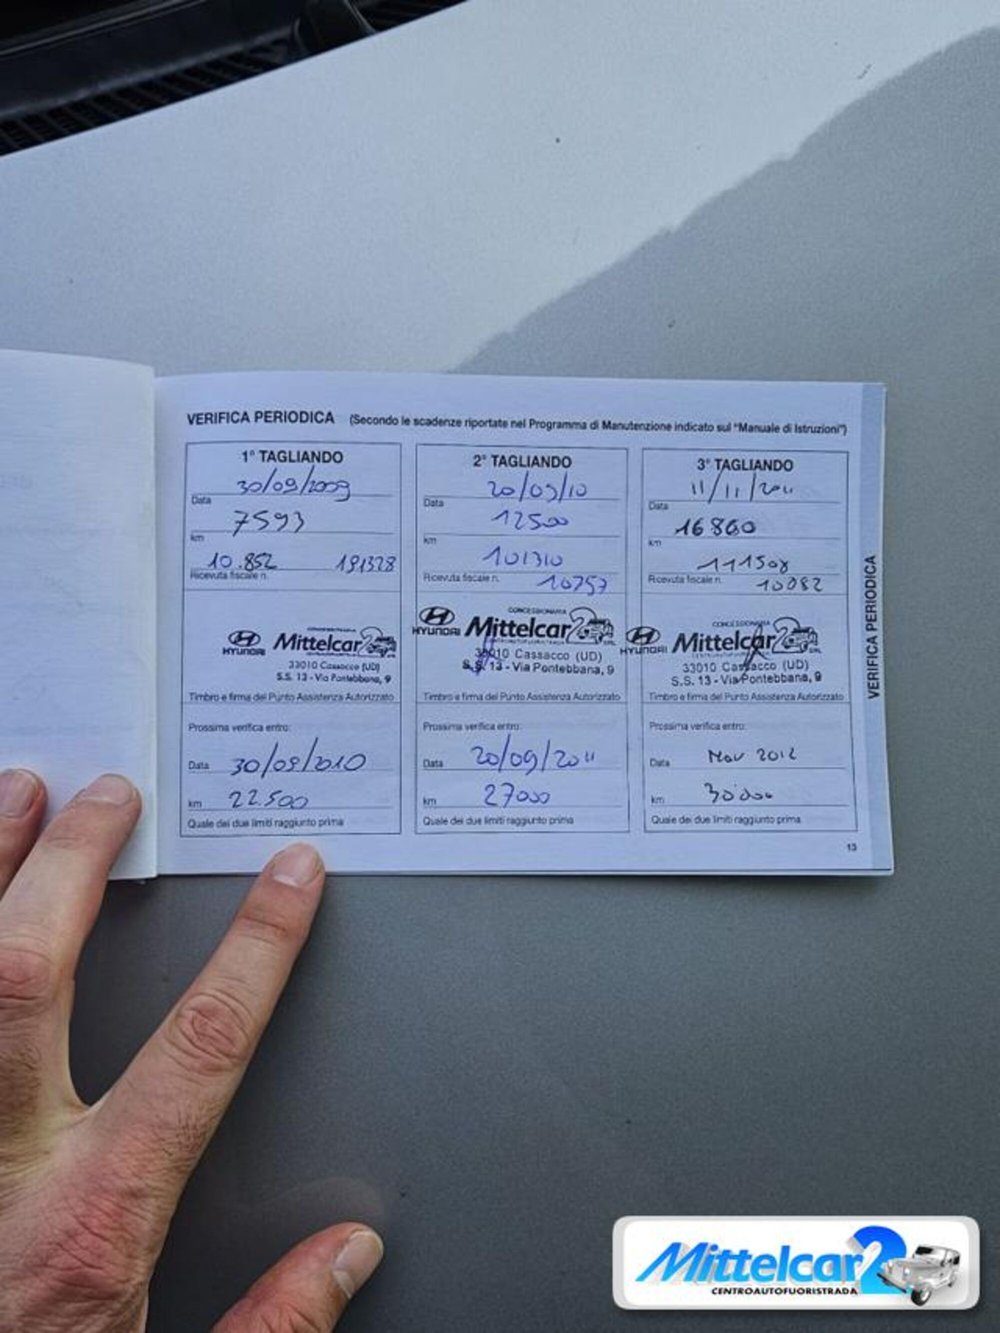 VERIFICA PERIODICA (Secondo le scadenze riportate nel Programma di Manutenzione indicato sul "Manuale di Istruzioni")
1° TAGLIANDO
30/09/2009
Data
7593
km
10.852 191328
Ricevuta fiscale n.
CONCESSIONARIA
HYUNDAI Mittelcar2
33010 Cassacco (UD)
S.S. 13 - Via Pontebbana, 9
Timbro e firma del Punto Assistenza Autorizzato
Prossima verifica entro:
Data 30/09/2010
km 22.500
Quale dei due limiti raggiunto prima
2° TAGLIANDO
20/09/10
Data
12500
km
101310
Ricevuta fiscale n. 10757
CONCESSIONARIA
HYUNDAI Mittelcar2 SRL
33010 Cassacco (UD)
S.S. 13 - Via Pontebbana, 9
Timbro e firma del Punto Assistenza Autorizzato
Prossima verifica entro:
Data 20/09/2011
km 27000
Quale dei due limiti raggiunto prima
3° TAGLIANDO
11/11/2011
Data
16860
km
111508
Ricevuta fiscale n. 10082
CONCESSIONARIA
HYUNDAI Mittelcar2 SRL
33010 Cassacco (UD)
S.S. 13 - Via Pontebbana, 9
Timbro e firma del Punto Assistenza Autorizzato
Prossima verifica entro:
Data Nov 2012
km 30000
Quale dei due limiti raggiunto prima
13
VERIFICA PERIODICA
Mittelcar2
CENTROAUTOFUORISTRADA